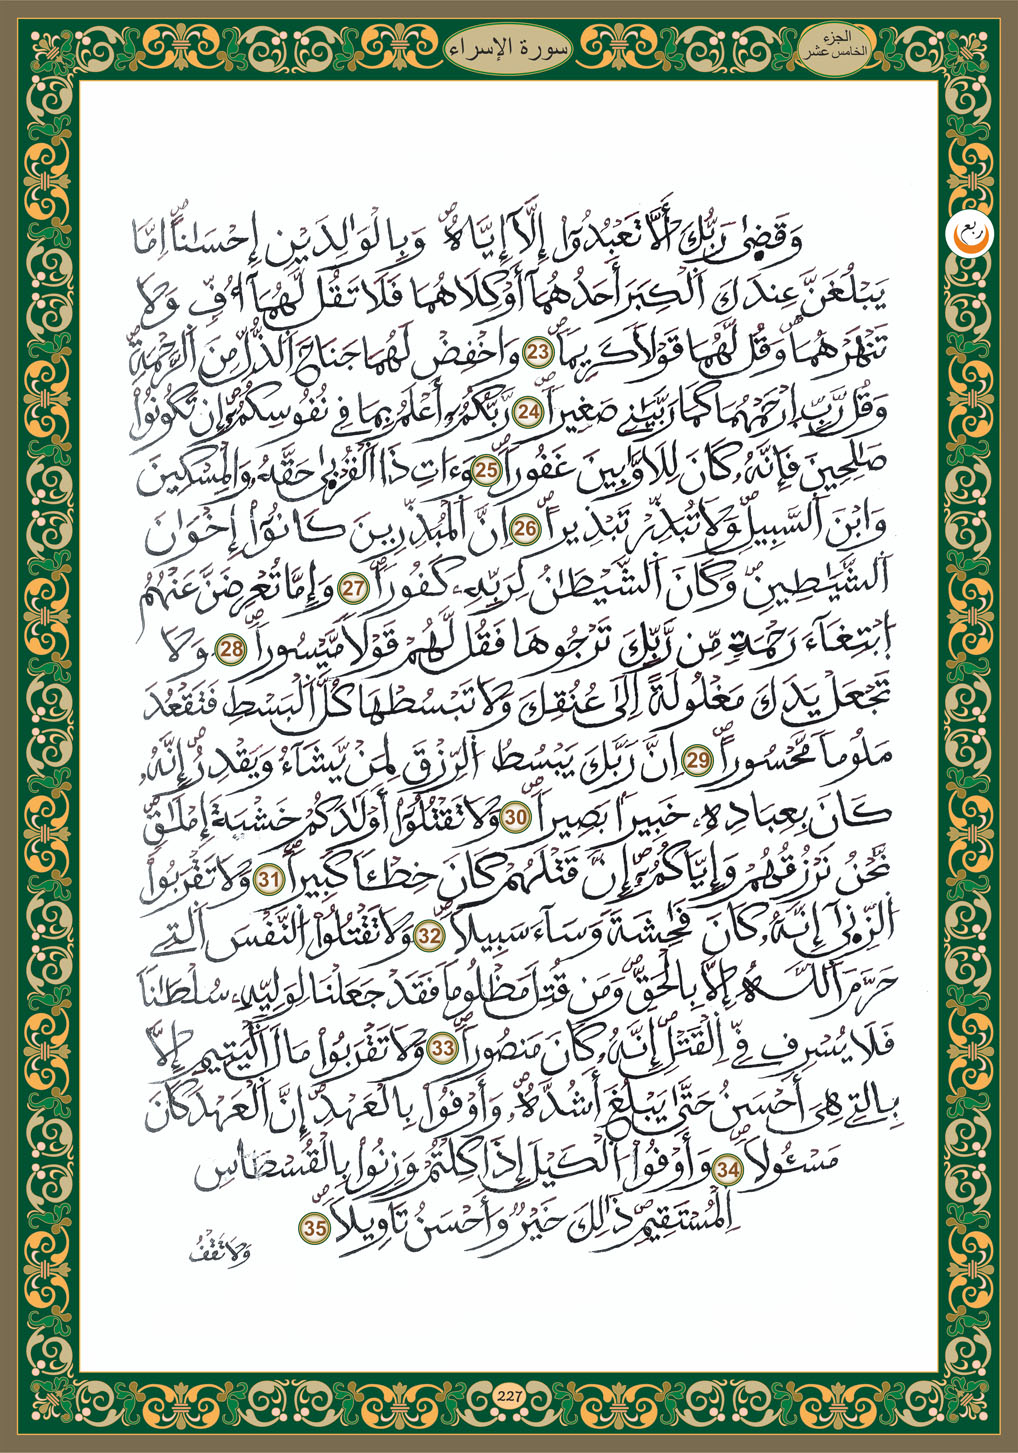 الجزء
الخامس عشر
سورة الإسراء
ربع
وَقَضَىٰ رَبُّكَ أَلَّا تَعْبُدُوٓا۟ إِلَّآ إِيَّاهُ وَبِالْوَٰلِدَيْنِ إِحْسَٰناً اِمَّا
يَبْلُغَنَّ عِندَكَ اَلْكِبَرَ أَحَدُهُمَآ أَوْ كِلَاهُمَا فَلَا تَقُل لَّهُمَآ أُفٍّ وَلَا
تَنْهَرْهُمَا وَقُل لَّهُمَا قَوْلاً كَرِيماً 23 وَاخْفِضْ لَهُمَا جَنَاحَ اَلذُّلِّ مِنَ اَلرَّحْمَةِ
وَقُل رَّبِّ اِرْحَمْهُمَا كَمَا رَبَّيَٰنِے صَغِيراً 24 رَّبُّكُمُۥٓ أَعْلَمُ بِمَا فِے نُفُوسِكُمُۥٓ إِن تَكُونُوا۟
صَٰلِحِينَ فَإِنَّهُۥ كَانَ لِلَاوَّٰبِينَ غَفُوراً 25 وَءَاتِ ذَا اَلْقُرْبَىٰ حَقَّهُۥ وَالْمِسْكِينَ
وَابْنَ اَلسَّبِيلِ وَلَا تُبَذِّرْ تَبْذِيراً 26 اِنَّ اَلْمُبَذِّرِينَ كَانُوٓا۟ إِخْوَٰنَ
اَلشَّيَٰطِينِ وَكَانَ اَلشَّيْطَٰنُ لِرَبِّهِۦ كَفُوراً 27 وَإِمَّا تُعْرِضَنَّ عَنْهُمُ
اُبْتِغَآءَ رَحْمَةٍ مِّن رَّبِّكَ تَرْجُوهَا فَقُل لَّهُمْ قَوْلاً مَّيْسُوراً 28 وَلَا
تَجْعَلْ يَدَكَ مَغْلُولَةً اِلَىٰ عُنُقِكَ وَلَا تَبْسُطْهَا كُلَّ اَلْبَسْطِ فَتَقْعُدَ
مَلُوماً مَّحْسُوراً 29 اِنَّ رَبَّكَ يَبْسُطُ اُلرِّزْقَ لِمَنْ يَّشَآءُ وَيَقْدِرُ إِنَّهُۥ
كَانَ بِعِبَادِهِۦ خَبِيراً بَصِيراً 30 وَلَا تَقْتُلُوٓا۟ أَوْلَٰدَكُمْ خَشْيَةَ إِمْلَٰقٍ
نَّحْنُ نَرْزُقُهُمْ وَإِيَّاكُمُۥٓ إِنَّ قَتْلَهُمْ كَانَ خِطْـٔاً كَبِيراً 31 وَلَا تَقْرَبُوا۟
اُلزِّنَىٰٓ إِنَّهُۥ كَانَ فَٰحِشَةً وَسَآءَ سَبِيلاً 32 وَلَا تَقْتُلُوا۟ اُلنَّفْسَ اَلتِے
حَرَّمَ اَللَّهُ إِلَّا بِالْحَقِّ وَمَن قُتِلَ مَظْلُوماً فَقَدْ جَعَلْنَا لِوَلِيِّهِۦ سُلْطَٰناً
فَلَا يُسْرِف فِّے اِلْقَتْلِ إِنَّهُۥ كَانَ مَنصُوراً 33 وَلَا تَقْرَبُوا۟ مَالَ اَلْيَتِيمِ إِلَّا
بِالتِے هِيَ أَحْسَنُ حَتَّىٰ يَبْلُغَ أَشُدَّهُۥ وَأَوْفُوا۟ بِالْعَهْدِ إِنَّ اَلْعَهْدَ كَانَ
مَسْـُٔولاً 34 وَأَوْفُوا۟ اُلْكَيْلَ إِذَا كِلْتُمْ وَزِنُوا۟ بِالْقُسْطَاسِ
اِلْمُسْتَقِيمِ ذَٰلِكَ خَيْرٌ وَأَحْسَنُ تَاوِيلاً 35
وَلَا تَقْفُ
227